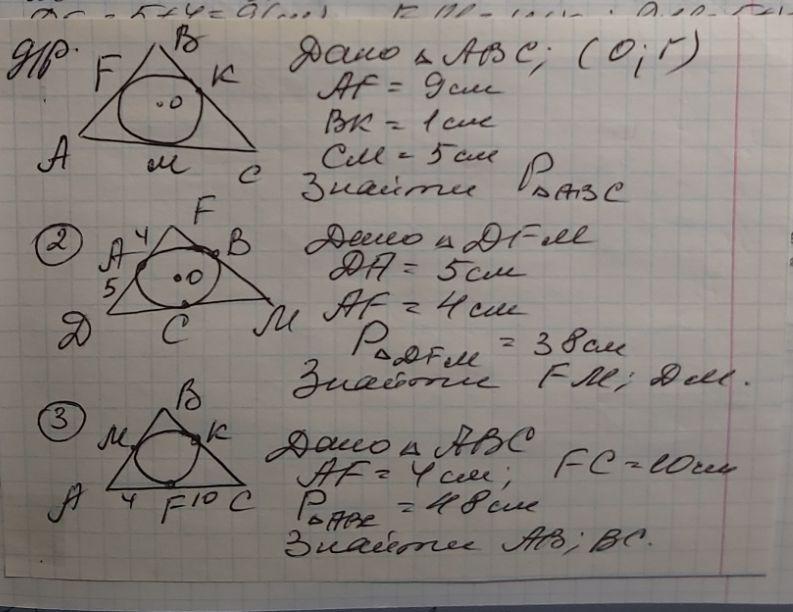 Д/р.
B
F K
O
A M C
Дано △ ABC; (O; r)
AF = 9 см
BK = 1 см
CM = 5 см
Знайти P△ABC
2
F
4
A B
5 O
Д C M
Дано △ DFM
DA = 5 см
AF = 4 см
P△DFM = 38 см
Знайти FM; DM.
3
B
M K
A 4 F 10 C
Дано △ ABC
AF = 4 см; FC = 10 см
P△ABC = 48 см
Знайти AB; BC.